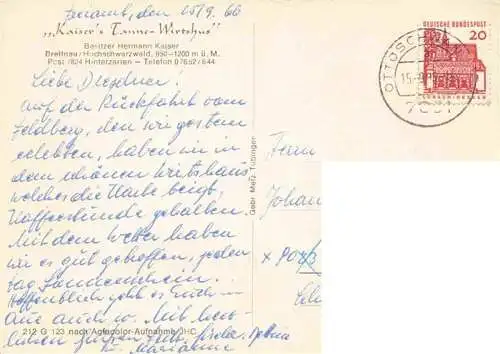 Freiamt, den 15/9. 66
„Kaiser's Tanne-Wirtshus"
Besitzer Hermann Kaiser
Breitnau/Hochschwarzwald, 950-1200 m ü. M.
Post 7824 Hinterzarten — Telefon 07652/644
Liebe Dresdner!
Auf der Rückfahrt vom
Feldberg, den wir gestern
erlebten, haben wir in
dem schönen Wirtshaus
welches die Karte zeigt,
Kaffeestunde gehalten.
Mit dem Wetter haben
wir es gut getroffen, jeden
Tag Sonnenschein.
Hoffentlich geht es Euch —
auch so. Mit herz-
lichen Grüßen
Marianne
212 G 123 nach Agfacolor-Aufnahme JHC
Gebr. Metz, Tübingen
DEUTSCHE BUNDESPOST
20
LORSCH · HESSEN
OTTOSCHWA
15.-9.
Johan